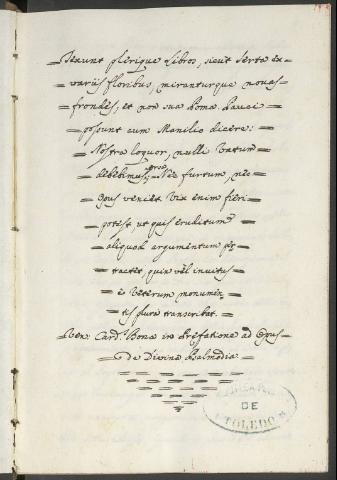 Texunt plerique Libros, sicut Serta ex
varijs floribus, miranturque novas
frondes, et non sua Poma. Pauci
possunt cum Manilio dicere:
Nostra loquor, nulli Vatum
debebimus, orsa
Nec furtum, sed
Opus veniet. Vix enim fieri
potest ut quis eruditum
aliquod argumentum per
tractet, quin vel invitus
è Veterum monumen
tis plura transcribat.
Ven. Card. Bona in Prefatione ad Opus
De Divina Psalmodia
DE
TOLEDO